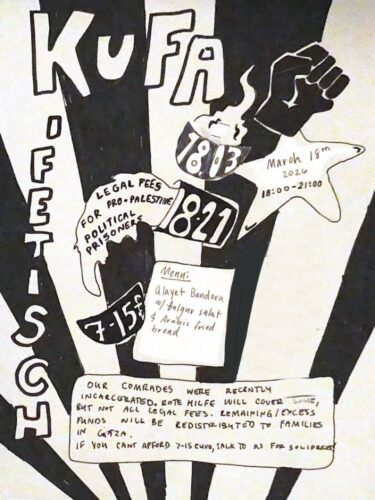 KUFA
'FETISCH
18:03
March 18th
2026
18:00-21:00
LEGAL FEES
FOR PRO-PALESTINE
POLITICAL
PRISONERS
18-21
7-15€
Menu:
Qlayet Bandora
w/ bulgur salat
& Arabic fried
bread
OUR COMRADES WERE RECENTLY
INCARCERATED. ROTE HILFE WILL COVER SOME,
BUT NOT ALL LEGAL FEES. REMAINING/EXCESS
FUNDS WILL BE REDISTRIBUTED TO FAMILIES
IN GAZA.
IF YOU CANT AFFORD 7-15 EURO, TALK TO US FOR SOLIPREIS!